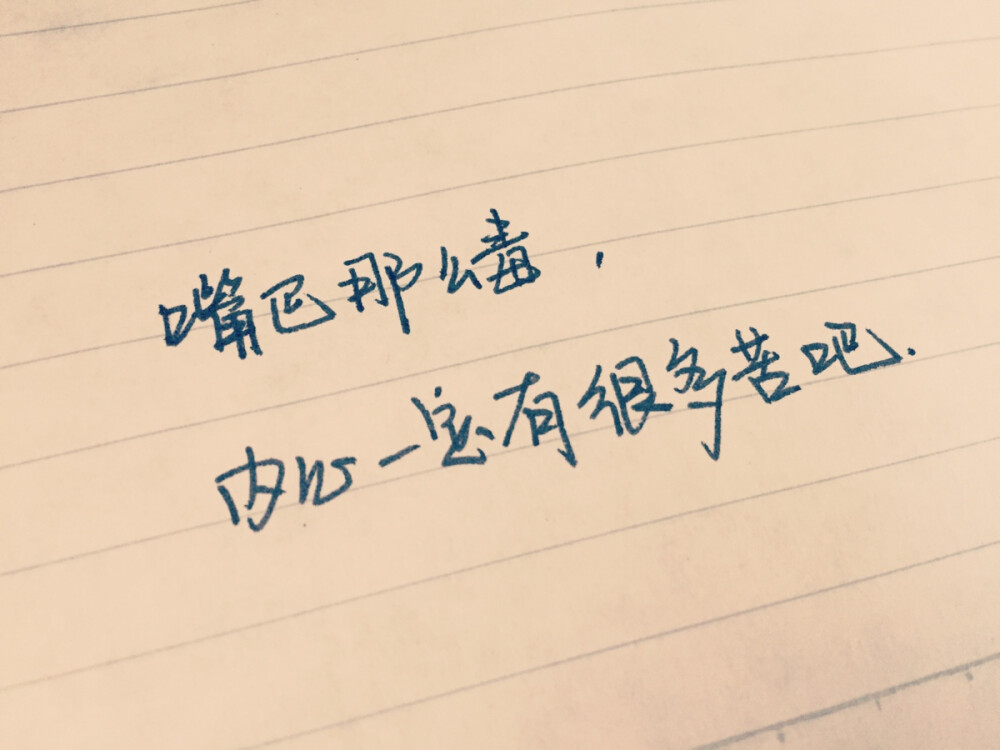 嘴巴那么毒，
内心一定有很多苦吧.